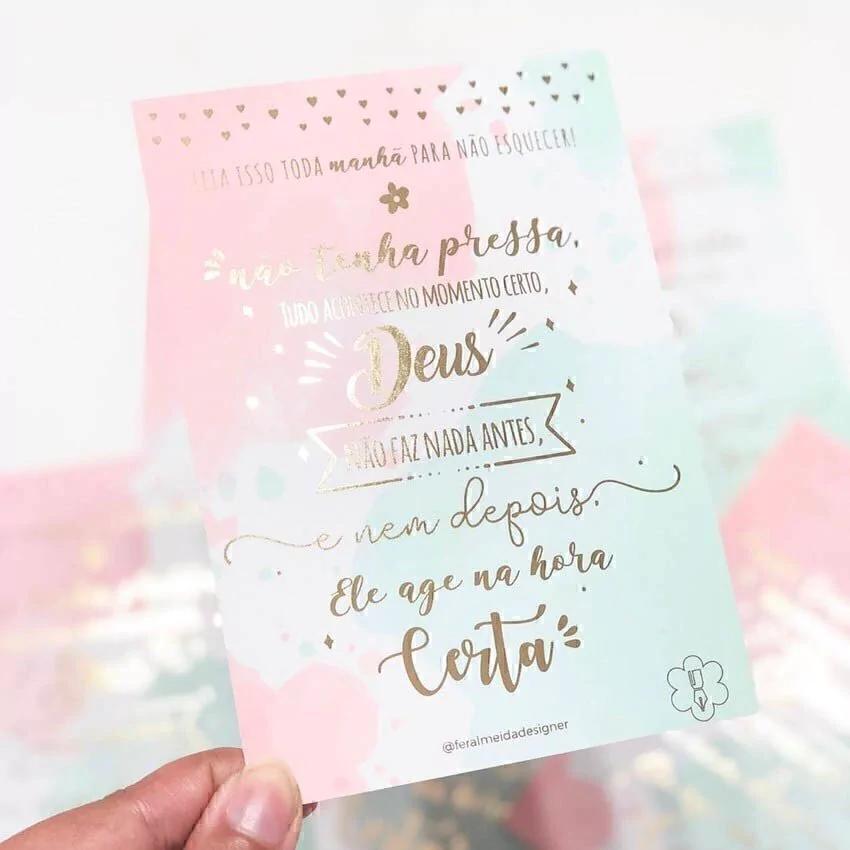 LEIA ISSO TODA manhã PARA NÃO ESQUECER!
não tenha pressa,
TUDO ACONTECE NO MOMENTO CERTO,
Deus
NÃO FAZ NADA ANTES,
e nem depois.
Ele age na hora
Certa
@feralmeidadesigner